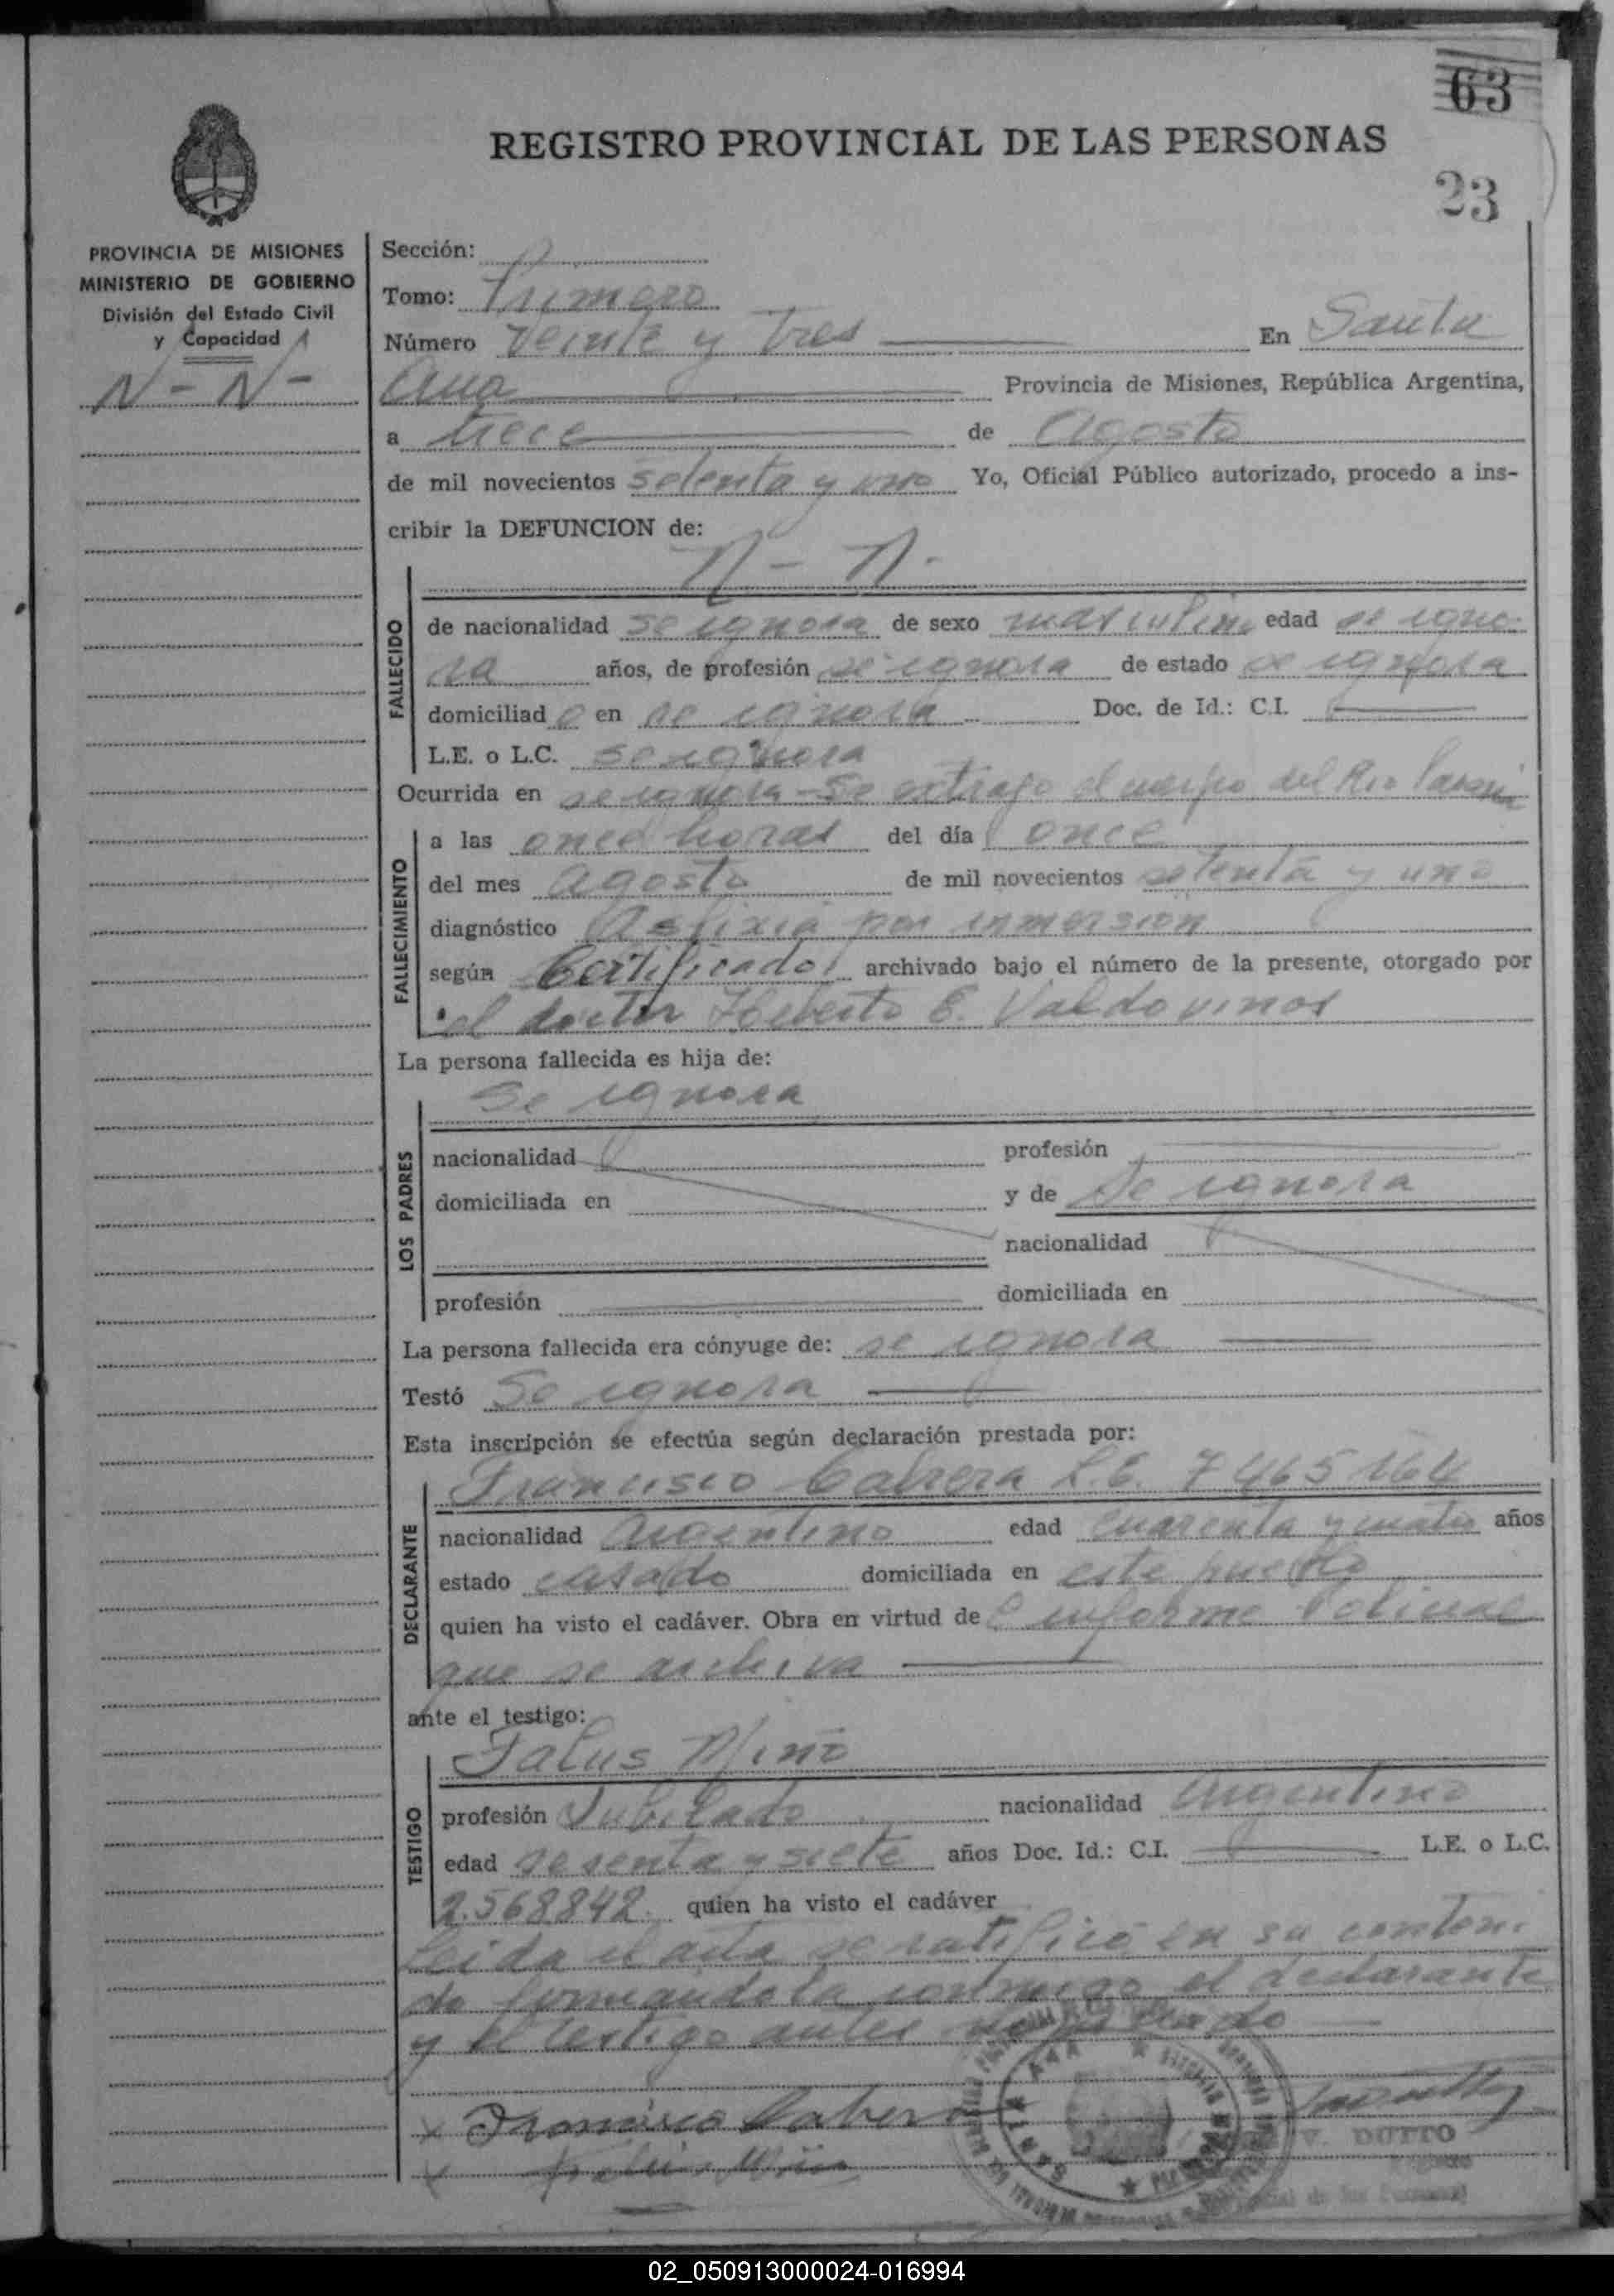 63
REGISTRO PROVINCIAL DE LAS PERSONAS
23
PROVINCIA DE MISIONES
MINISTERIO DE GOBIERNO
División del Estado Civil
y Capacidad
N - N -
Sección:
Tomo: Primero
Número Veinte y Tres En Santa
Ana Provincia de Misiones, República Argentina,
a trece de Agosto
de mil novecientos setenta y uno Yo, Oficial Público autorizado, procedo a ins-
cribir la DEFUNCION de:
N - N -
FALLECIDO
de nacionalidad se ignora de sexo masculino edad se igno-
ra años, de profesión se ignora de estado se ignora
domiciliado en se ignora Doc. de Id.: C.I.
L.E. o L.C. se ignora
Ocurrida en se ignora - Se extrajo el cuerpo del Rio Paraná
FALLECIMIENTO
a las once horas del día once
del mes Agosto de mil novecientos setenta y uno
diagnóstico Asfixia por inmersión
según Certificado archivado bajo el número de la presente, otorgado por
el doctor Heberto E. Valdovinos
La persona fallecida es hija de:
LOS PADRES
Se ignora
nacionalidad profesión
domiciliada en y de Se ignora
nacionalidad
profesión domiciliada en
La persona fallecida era cónyuge de: se ignora
Testó Se ignora
Esta inscripción se efectúa según declaración prestada por:
DECLARANTE
Francisco Cabrera L.E. 7465164
nacionalidad Argentino edad cuarenta y cuatro años
estado casado domiciliada en este pueblo
quien ha visto el cadáver. Obra en virtud de informe Policial
que se archiva
ante el testigo:
TESTIGO
Miño
profesión Jubilado nacionalidad Argentino
edad sesenta y siete años Doc. Id.: C.I. L.E. o L.C.
2.568842. quien ha visto el cadáver
Leida el acta se ratificó en su conteni-
do firmándola conmigo el declarante
y el testigo antes
x Francisco Cabrera
x Miño
SANTA ANA
V. DUTTO
02_050913000024-016994